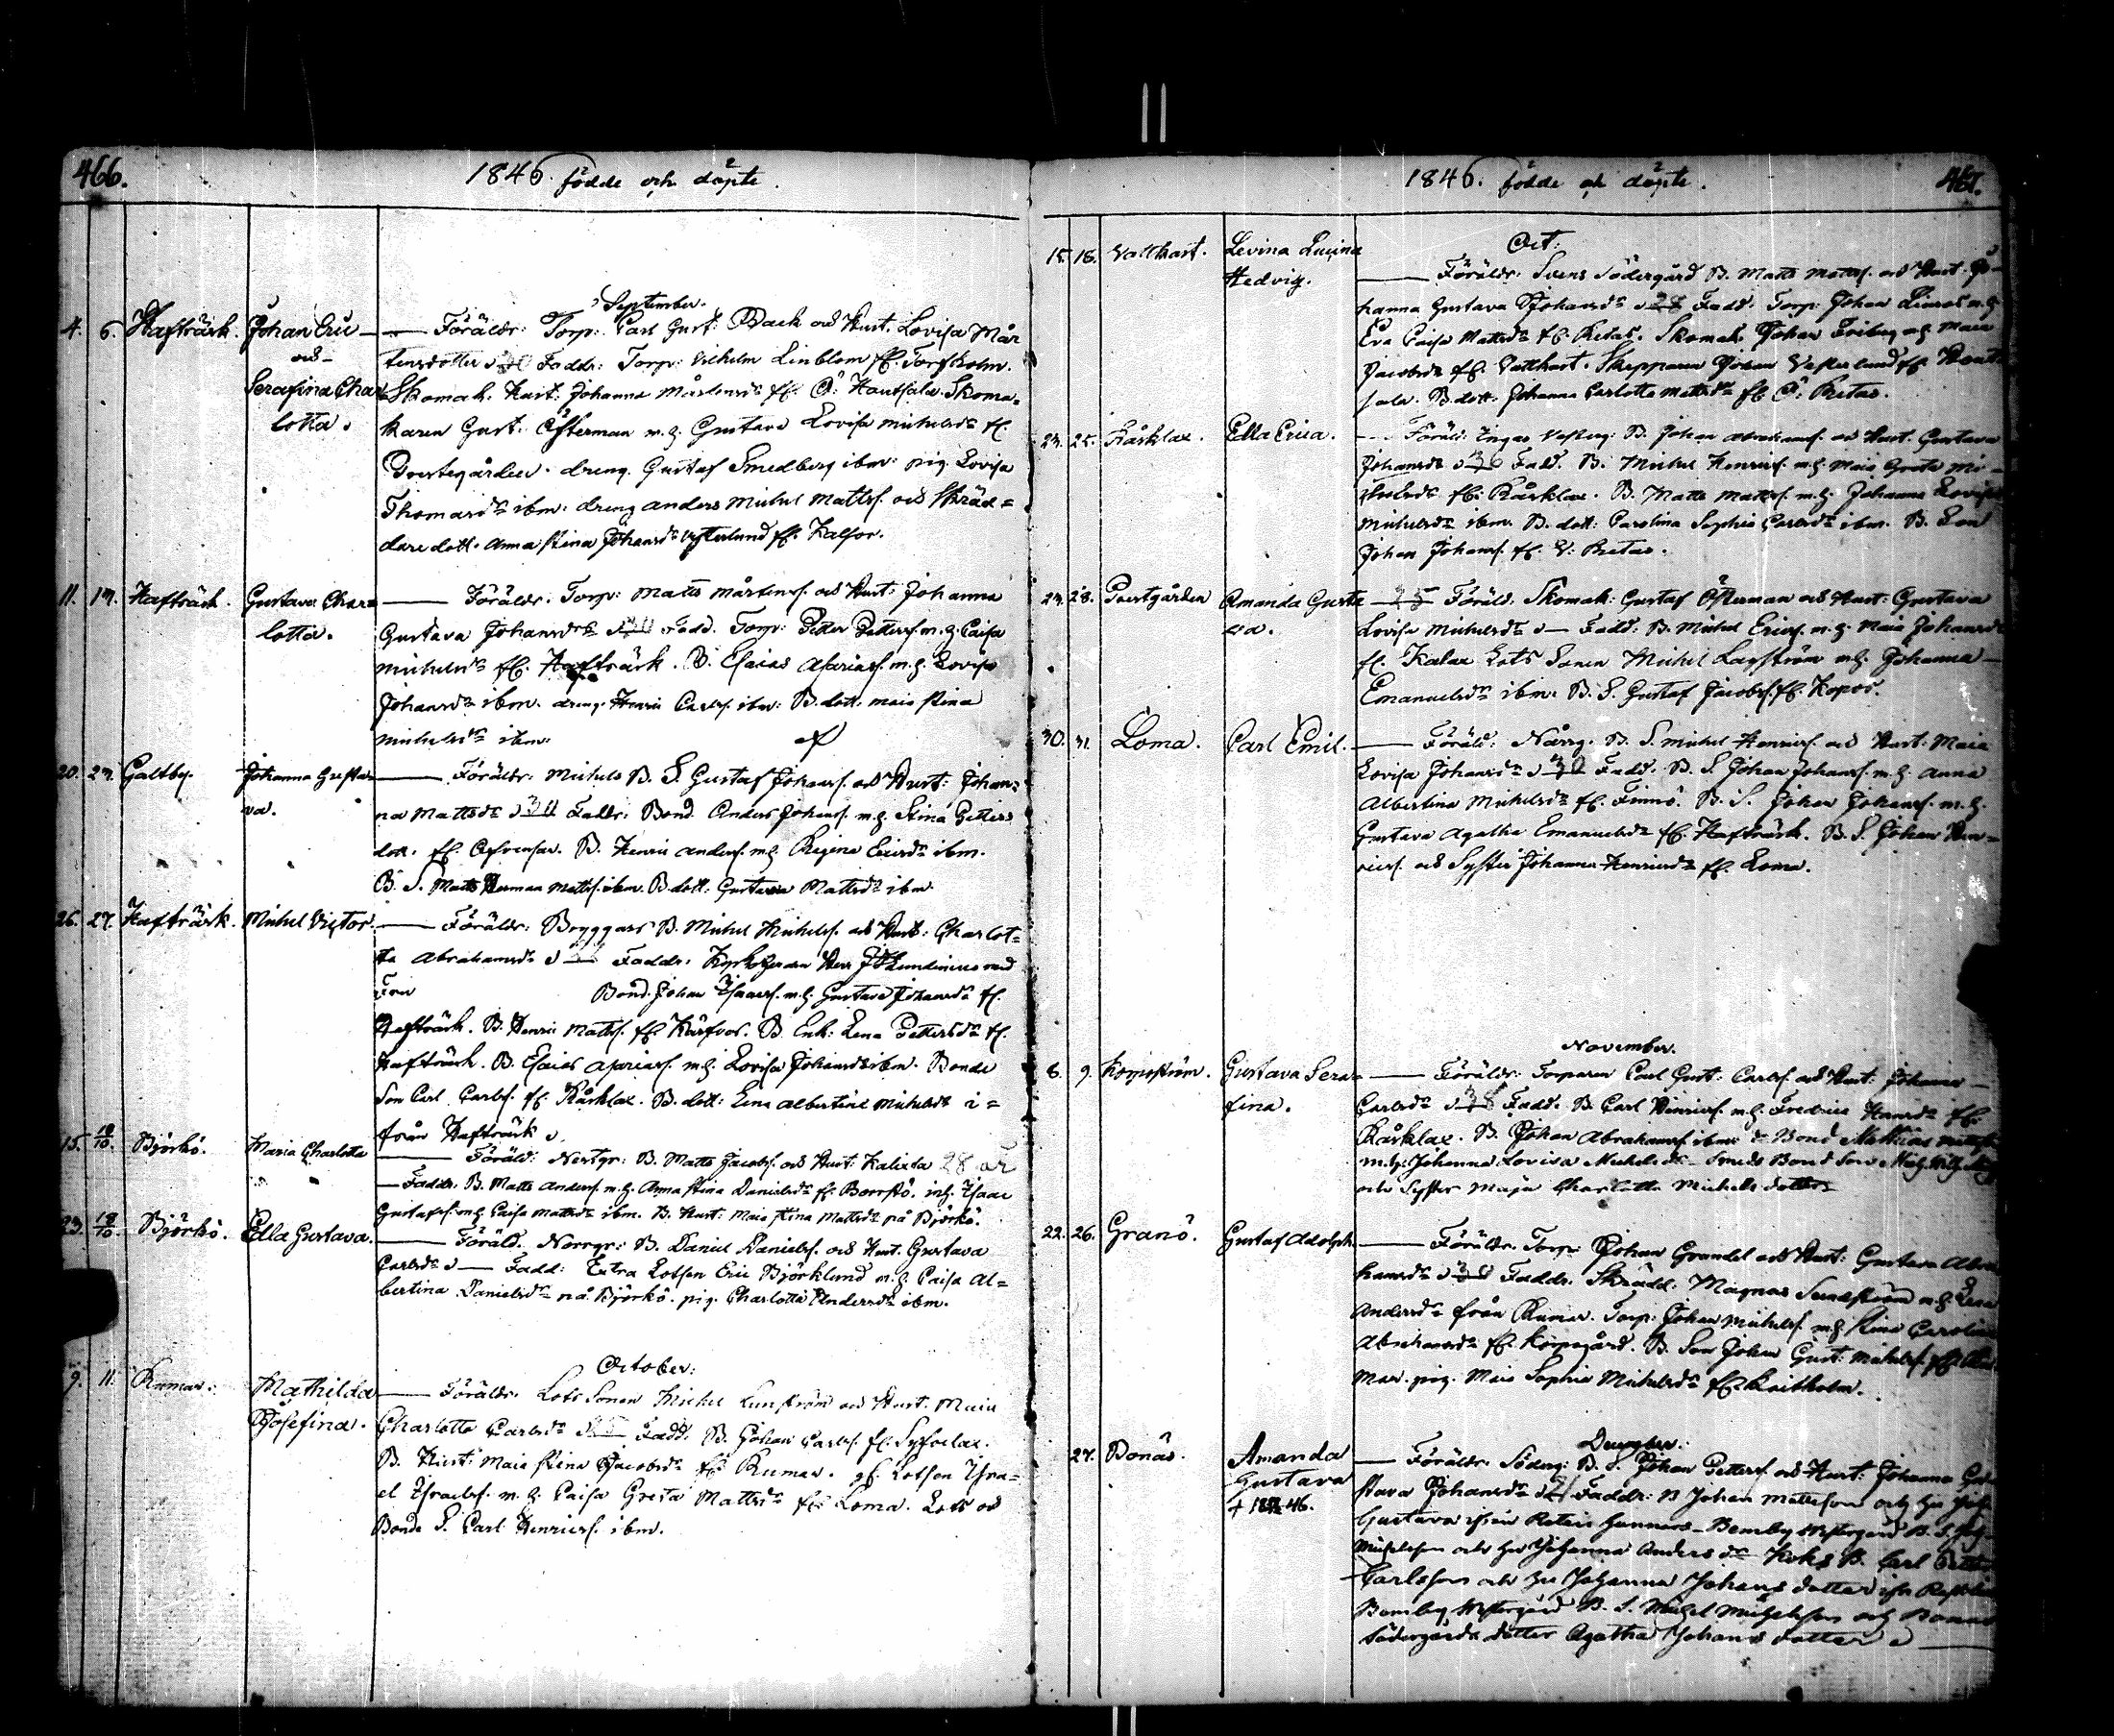 466.
1846. födde och döpte.
September.
4. 6. Hafträsk. Johan Eric — Föräldr: Torp: Carl Gust: Back och Hust. Lovisa Mår
och tensdotter Faddr: Torp: Vilhelm Linblom fr. Torsholm.
Serafina Char Skomak. Hust: Johanna Mårtensdr fr. Ö: Hautsala. Skoma-
lotta. karen Gust: Österman m.h. Gustava Lovisa Michelsdr fr.
Prestegården. dreng. Gustaf Smedberg ibm: pig. Lovisa
Thomasdr ibm: dreng Anders Michel Mattss. och Skräd=
dare dott. Anna Stina Johansdr Vesterlund fr. Kalsor.
11. 13. Hafträsk. Gustava Char= — Föräldr. Torp: Matts Mårtenss. och Hust: Johanna
lotta. Gustava Johansdr 30 Fadd. Torp: Petter Petterss. m.h. Caisa
Michelsdr fr. Hafträsk. B. Esaias Asariass. m.h. Lovisa
Johansdr ibm. dreng Henric Carlss. ibm: B. dott. Maia Stina
Michelsdr ibm:
20. 24. Galtby. Johanna Gusta= — Föräldr: Michels B. S. Gustaf Johanss. och Hust: Johan=
va. na Mattsdr 30 Faddr: Bond. Anders Johanss. m.h. Stina Petters
dott. fr. B. Henric Anderss. m.h. Regina Ericsdr ibm.
B. S. Matts Herman Mattss. ibm. B. dott: Gustava Mattsdr ibm.
26. 27. Hafträsk. Michel Victor. — Föräldr: Bryggars B. Michel Michelss. och Hust: Charlot=
ta Abrahamsdr Faddr: Herr med
Fru Bond. Johan Isacss. m.h. Gustava Johansdr fr.
Hafträsk. B. Henric Mattss. fr. B. Enk: Lena Pettersdr fr.
Hafträsk. B. Esaias Asariass. m.h. Lovisa Johansdr ibm. Bonde
Son Carl Carlss. fr. Kårklax. B. dott: Lena Albertina Michelsdr i=
från Hafträsk
15. 18/10. Björkö. Maria Charlotta — Föräld: Nertgr: B. Matts Jacobss. och Hust: Kalixta 28 år
— Faddr. B. Matts Anderss. m.h. Anna Stina Danielsdr fr. inh. Isaac
Gustafss. m.h. Caisa Mattsdr ibm. B. Hust: Maia Stina Mattsdr på Björkö.
23. 18/10. Björkö. Edla Gustava. — Föräld. Norrgr: B. Daniel Danielss. och Hust. Gustava
Carlsdr — Fadd: Extra Lotsen Eric Björklund m.h. Caisa Al=
bertina Danielsdr på Björkö. pig. Charlotta Andersdr ibm.
October:
9. 11. Rumar. Mathilda — Föräldr. Lots Sonen Michel Lunström och Hust. Maia
Josefina. Charlotta Carlsdr 25 Fadd. B. Johan Carlss. fr.
B. Hust: Maia Stina Jacobsdr fr. Rumar. Lotsen Isra=
el Israelss. m.h. Caisa Greta Mattsdr fr. Loma. Lots och
Bonde S. Carl Henricss. ibm.
1846. födde och döpte.
467.
Oct:
15. 18. Vattkast. Levina Lucina — Föräldr: Svens Södergård B. Matts Mattss. och Hust. Jo=
Hedvig. hanna Gustava Johansdr 28 Fadd. Torp: Johan m.h.
Eva Caisa Mattsdr fr. Retais. Skomak. Johan m.h. Maia
Jacobsdr fr. Vattkast. Skepparen Johan Vesterlund fr. Haut
sala. B. dott. Johanna Carlotta Mattsdr fr. Ö: Retais.
23. 25. Kårklax. Edla Erica. — Föräld: Ingas Vesterg: B. Johan Abrahamss. och Hust. Gustava
Johansdr 36 Fadd. B. Michel Henricss. m.h. Maia Greta Mi=
chelsdr fr. Kårklax. B. Matts Mattss. m.h. Johanna Lovisa
Michelsdr ibm. B. dott: Carolina Sophia Carlsdr ibm. B. Son
Johan Johanss. fr. V: Retais.
24. 28. Prestgården Amanda Gusta — 25 Föräld. Skomak: Gustaf Österman och Hust: Gustava
va. Lovisa Michelsdr — Fadd: B. Michel Ericss. m.h. Maia Johansdr
fr. Kalax Lots Sonen Michel Lagström m.h. Johanna —
Emanuelsdr ibm: B. S. Gustaf Jacobss. fr. Kopos.
30. 31. Loma. Carl Emil. — Föräld: Norrg. B. S. Michel Henricss. och Hust: Maia
Lovisa Johansdr 30 Fadd. B. S. Johan Johanss. m.h. Anna
Albertina Michelsdr fr. Finnö. B. S. Johan Johanss. m.h.
Gustava Agatha Emanuelsdr fr. Hafträsk. B. S. Johan Hen=
ricss. och Syster Johanna Henricsdr fr. Loma.
November.
8. 9. Kopoström. Gustava Sera= — Föräldr: Torparen Carl Gust: Carlss. och Hust: Johanna —
fina. Carlsdr 38 Fadd. B. Carl Henricss. m.h. Fredrica Hansdr fr.
Kårklax. B. Johan Abrahamss. ibm: Bond Mathias
m.h. Johanna Lovisa Michelsdr Bond Son
och Syster Maja Charlotta Michels dotter
22. 26. Granö. Gustaf Adolph. — Föräldr. Torp: Johan Grandel och Hust: Gustava Abra
hamsdr 30 Faddr. Skrädd. Magnus Sundström m.h. Lena
Andersdr från Rumar. Torp: Johan Michelss. m.h. Stina Carolina
Abrahamsdr fr. Kopogård. B. Son Johan Gust: Michelss. fr. Ru
mar. pig. Maia Sophia Michelsdr fr.
December.
27. Bonäs. Amanda — Föräldr. Söderg: B. S. Johan Petterss. och Hust: Johanna Gu
Gustava stava Johansdr 21 Faddr: B Johan Mattsson och hu
+ 46. Gustava ifrån Retais Gunnars — Bomby Westergård B. S.
Michelsson och hu Johanna Andersdr B. Carl
Carlsson och hu Johanna Johans dotter
Bomby Westergård B. S. Michel Michelsson och Bonäs
Södergårds dotter Agatha Johans dotter